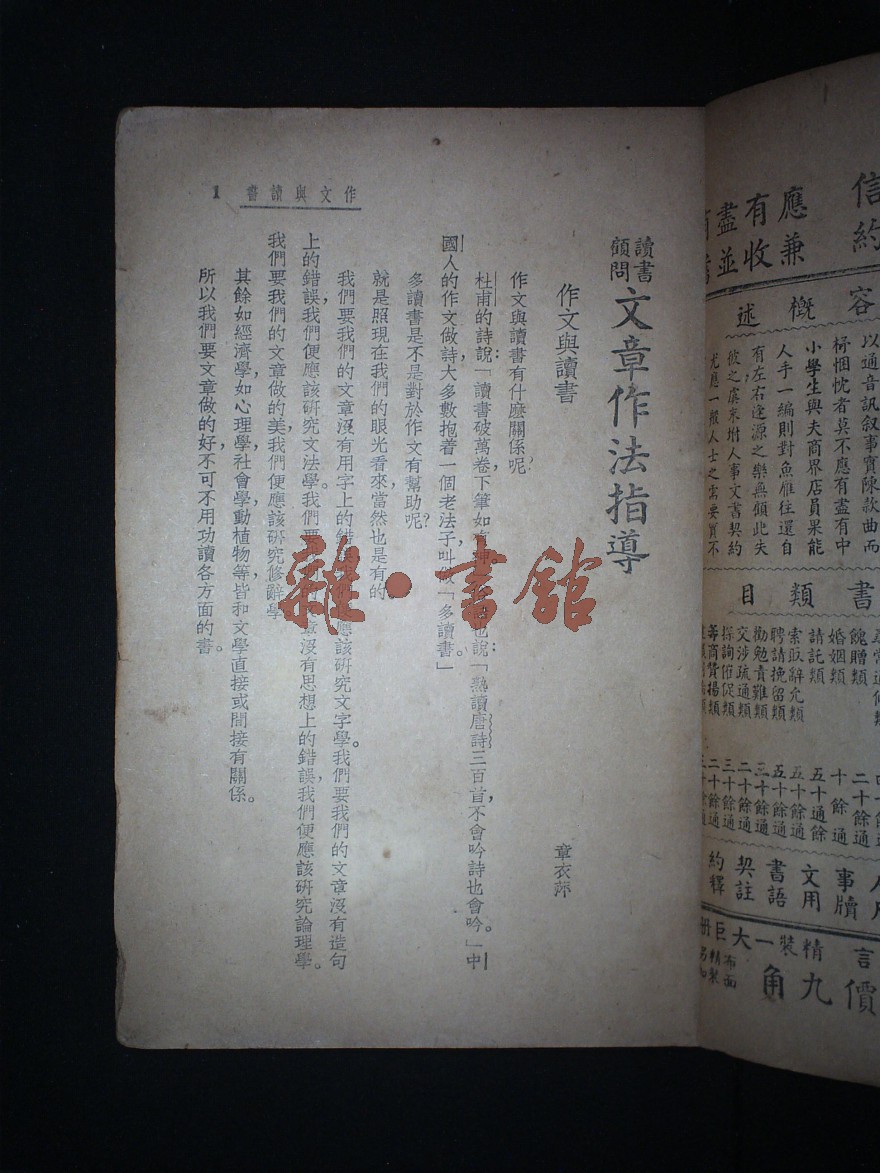 信約
應兼
有收
盡並
容概述
以通音訊叙事實陳款曲而
悃忱者莫不應有盡有中
小學生與夫商界店員果能
人手一編則對魚雁往還自
有左右逢源之樂無傾此失
彼之虞來坿人事文書契約
尤應一般人士之需要買不
書類目
餽贈類 二十餘通
婚姻類 十餘通
請託類 五十通餘
索取辭允類 五十餘通
聘請挽留類 五十餘通
勸勉責難類 三十餘通
交涉疏通類 二十餘通
探詢催促類 三十餘通
二十餘通
事牘
文用
書語
契註
約釋
言價
精九
裝角
一
大
巨
册
布面
讀書顧問 文章作法指導
作文與讀書
章衣萍
作文與讀書有什麽關係呢?
杜甫的詩說:「讀書破萬卷,下筆如有神。」俗語也說:「熟讀唐詩三百首,不會吟詩也會吟。」中
國人的作文做詩,大多數抱着一個老法子,叫做「多讀書。」
多讀書是不是對於作文有幫助呢?
就是照現在我們的眼光看來,當然也是有的
我們要我們的文章沒有用字上的錯誤,我們便應該研究文字學。我們要我們的文章沒有造句
上的錯誤,我們便應該研究文法學。我們要我們的文章沒有思想上的錯誤,我們便應該研究論理學。
我們要我們的文章做的美,我們便應該研究修辭學
其餘如經濟學,如心理學,社會學,動植物等,皆和文學直接或間接有關係。
所以我們要文章做的好,不可不用功讀各方面的書。
作文與讀書 1
雜·書館